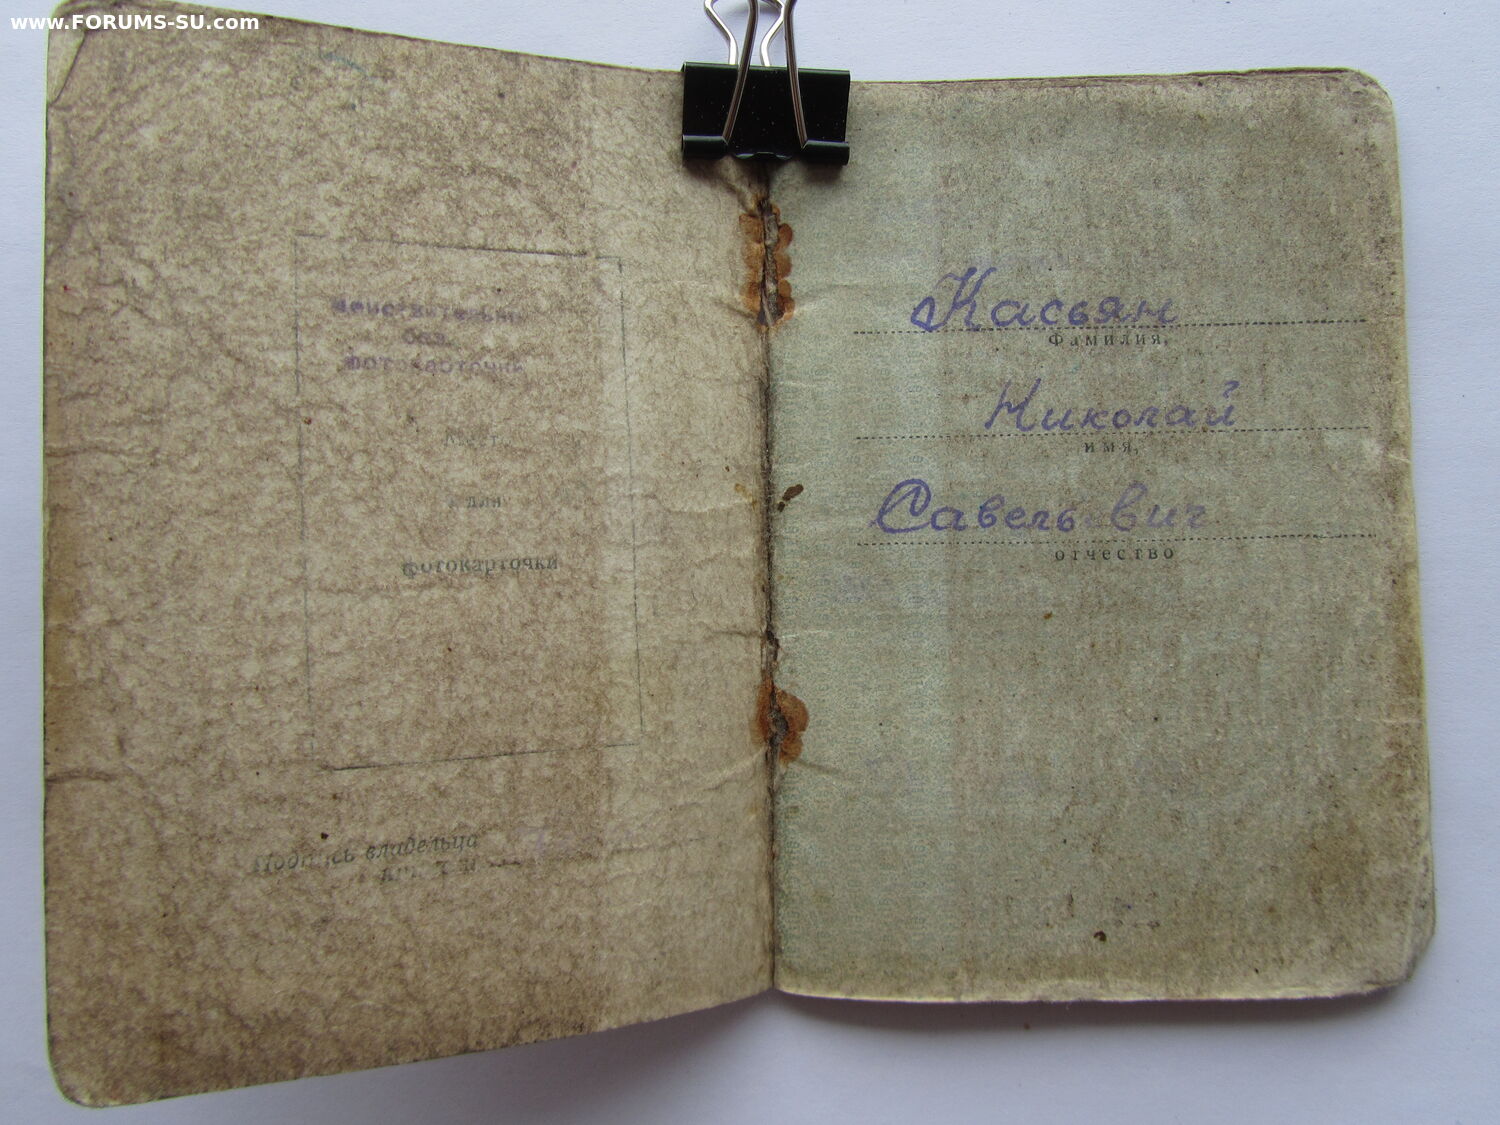 www.FORUMS-SU.com
действительно
без
фотокарточки
Место
для
фотокарточки
Подпись владельца
Касьян
Фамилия,
Николай
имя,
Савельевич
отчество